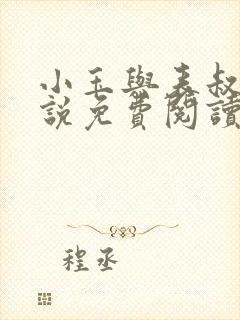 小玉與表叔
說免費閱讀
程丞